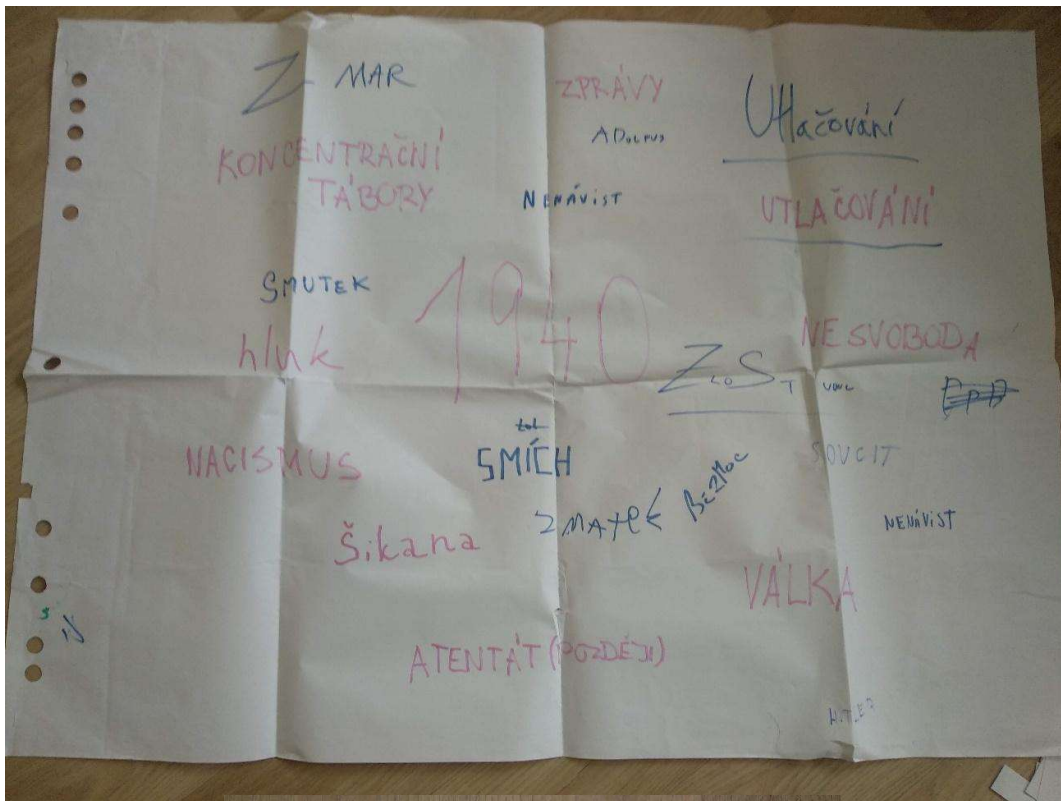 Z MAR
ZPRÁVY
Utlačování
ADOLPUS
KONCENTRAČNÍ
TÁBORY
NENÁVIST
UTLAČOVÁNÍ
SMUTEK
1940
hluk
NESVOBODA
ZLOST
NACISMUS
SMÍCH
SOUCIT
BEZMOC
ZMATEK
NENÁVIST
Šikana
VÁLKA
ATENTÁT (POZDĚJI)
HITLER